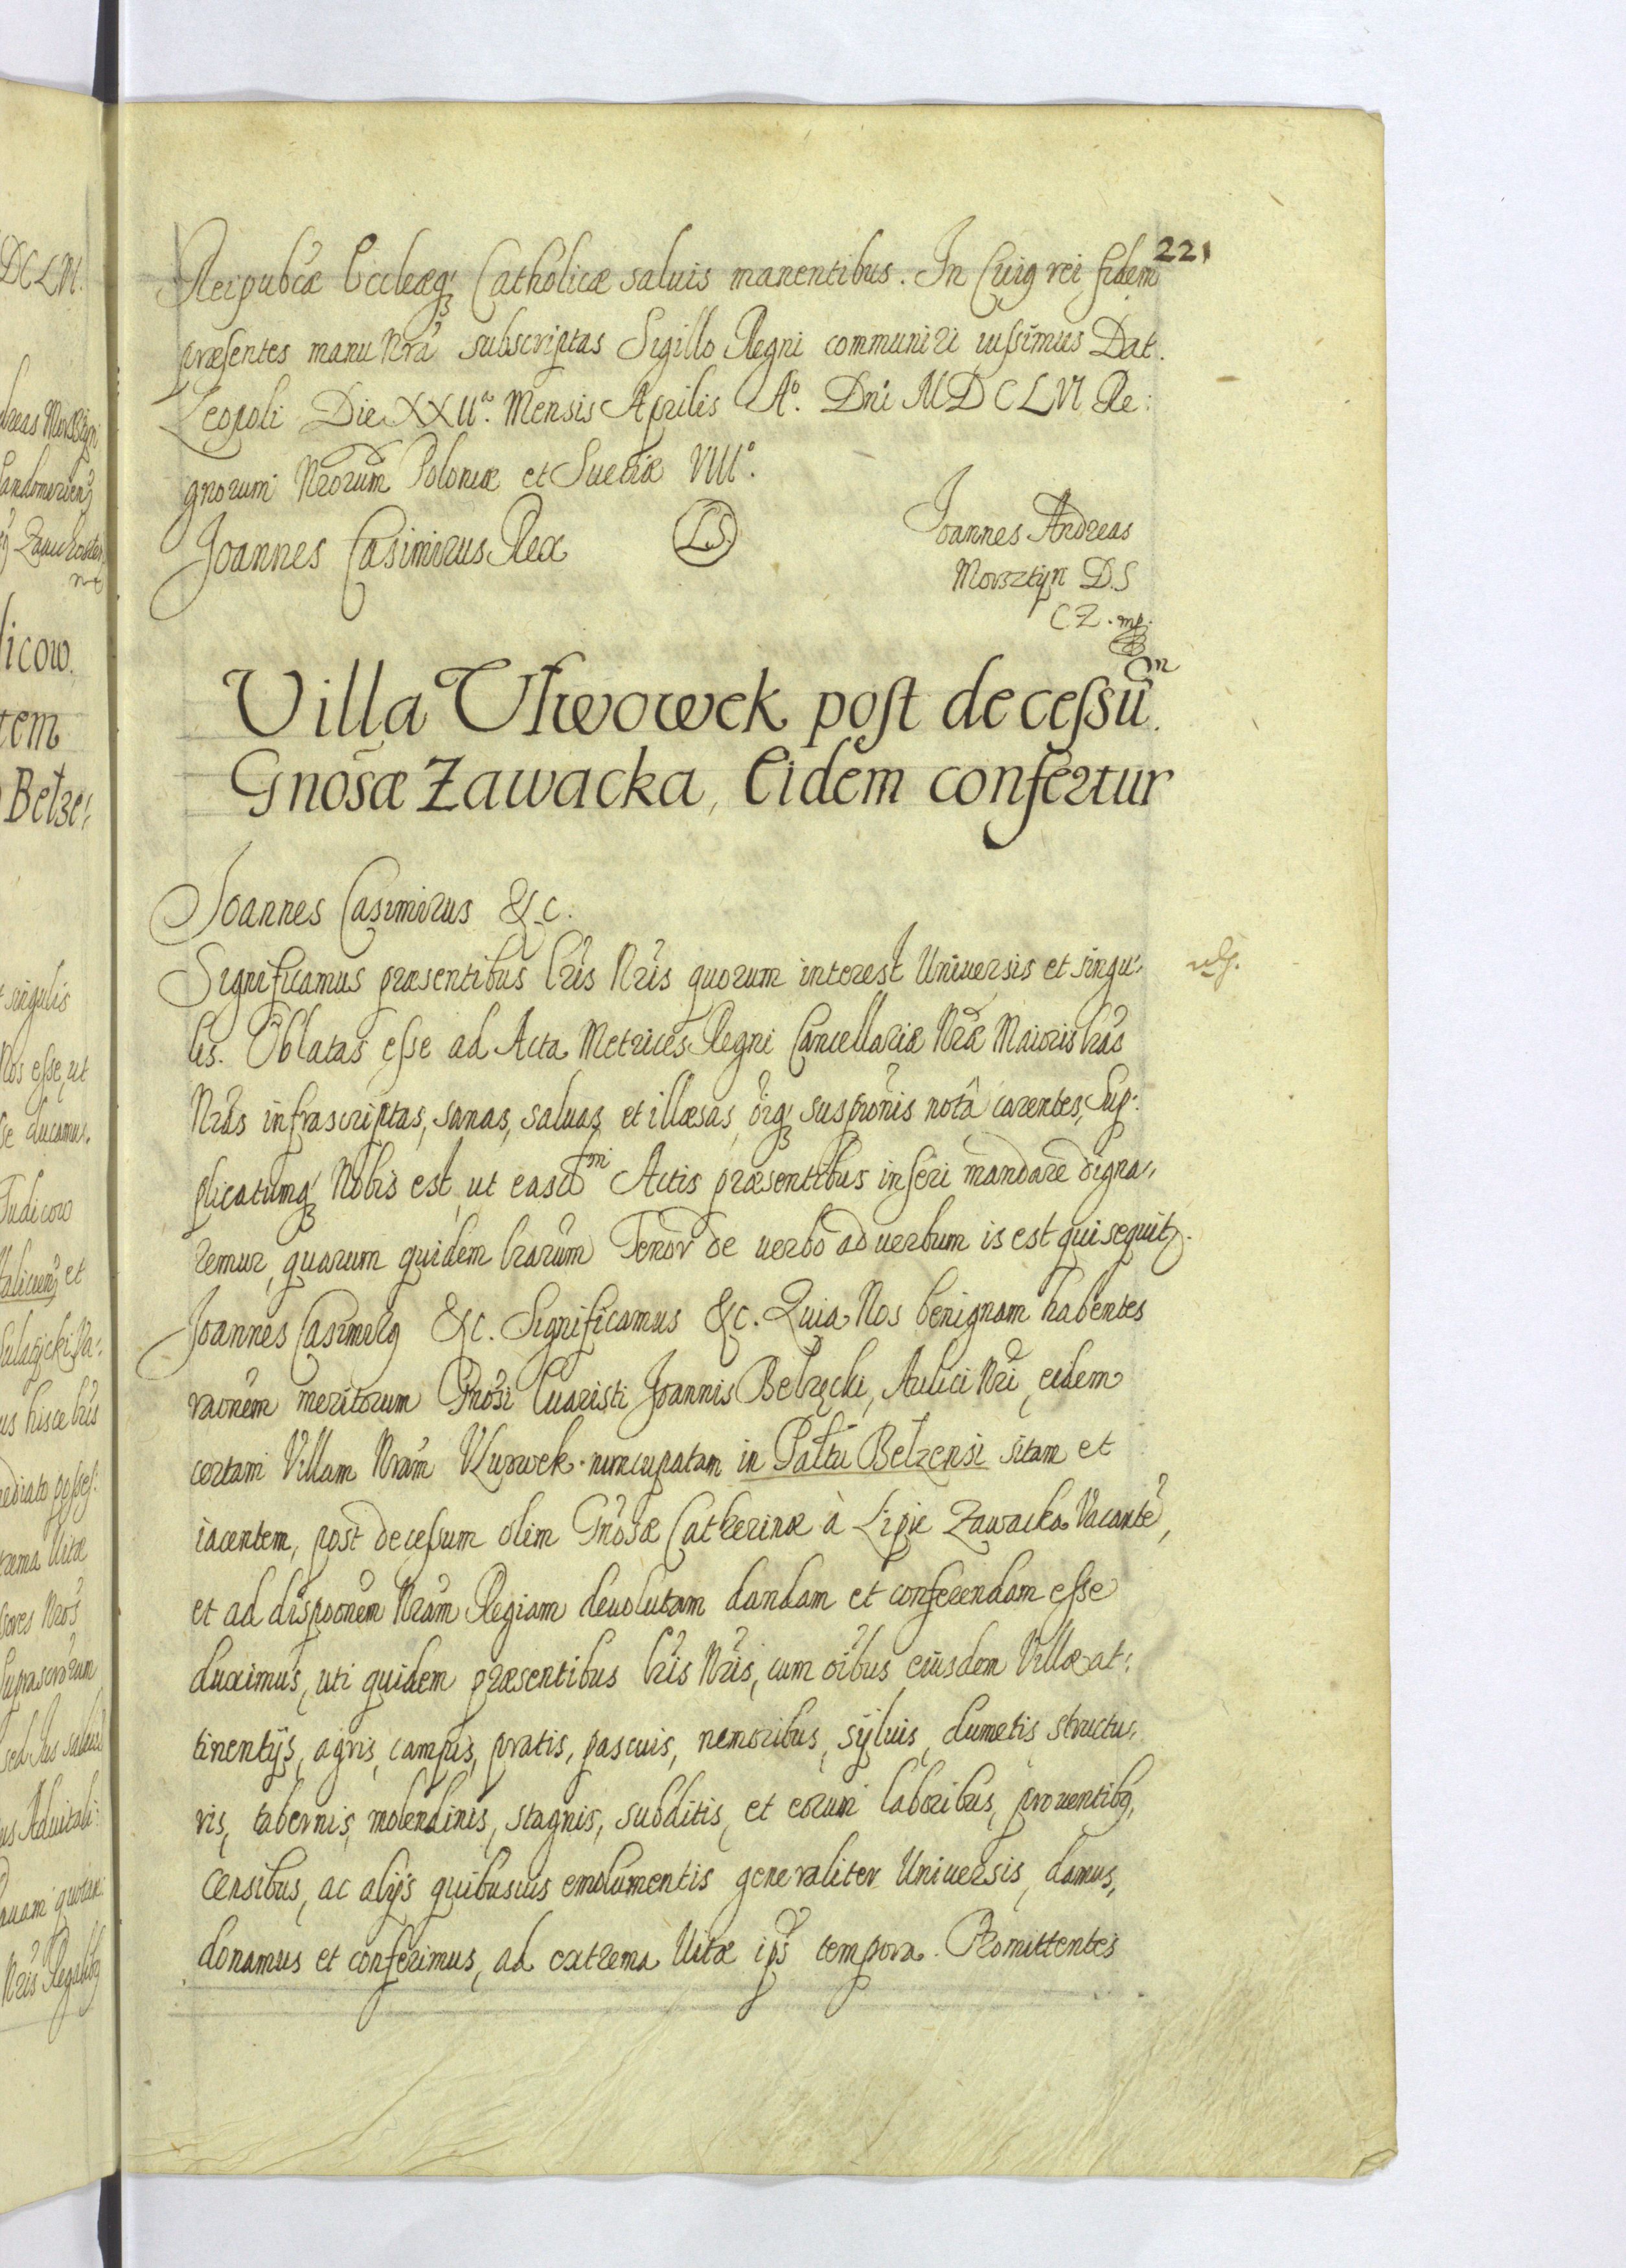 221
Reipubcæ Eccleæq3 Catholicæ saluis manentibus. In Cuig rei fidem
præsentes manu Nrã subscriptas Sigillo Regni communiri iussimus Dat.
Leopoli Die XXIIa. Mensis Aprilis Ao. Dni MDCLVI Re:
gnorum Nrorum Poloniæ et Sueciæ VIIIo.
Joannes Casimirus Rex
LS
Joannes Andreas
Morsztyn D.S
C Z. mp.
Villa Uhwowek post decessũm
Gnosæ Zawacka, Eidem confertur
Joannes Casimirus &c.
Significamus præsentibus lris Nris quorum interest Uniuersis et singu:
lis. Oblatas esse ad Acta Metrices Regni Cancellariæ Nræ Maioris lras
Nras infrascriptas, sanas, saluas et illæsas, oiq3 suspionis notâ carentes, Sup:
plicatumq3 Nobis est, ut easdm Actis præsentibus inseri mandare digna:
remur, quarum quidem lrarum Tenor de uerbo ad uerbum is est qui sequit.
Joannes Casimirg &c. Significamus &c. Quia Nos benignam habentes
raonem meritorum Gnosi Euaristi Joannis Bełzęcki, Aulici Nri, eidem
certam Villam Nram Uhwowek nuncupatam in Pałtu Bełzensi sitam et
iacentem, post decessum olim Gnosæ Catherinæ à Lipie Zawacka Vacante,
et ad disponem Nram Regiam deuolutam dandam et conferendam esse
duximus, uti quidem præsentibus lris Nris, cum oibus eiusdem Villæ at:
tinentijs, agris, campis, pratis, pascuis, nemoribus, syluis, dumetis structu:
ris, tabernis, molendinis, stagnis, subditis, et eorum laboribus, prouentibg,
censibus, ac alijs quibusuis emolumentis generaliter Uniuersis, damus,
donamus et conferimus, ad extrema Uitæ ips tempora. Promittentes